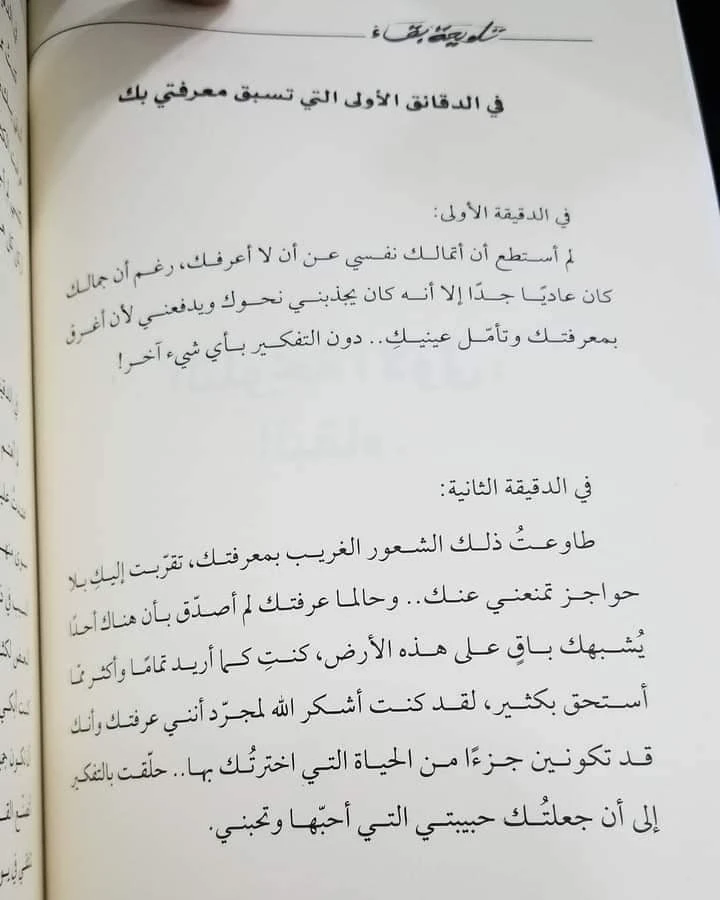 تلويحة بقاء
في الدقائق الأولى التي تسبق معرفتي بك
في الدقيقة الأولى:
لم أستطع أن أتمالك نفسي عن أن لا أعرفك، رغم أن جمالك
كان عاديًا جدًا إلا أنه كان يجذبني نحوك ويدفعني لأن أغرق
بمعرفتك وتأمّل عينيكِ.. دون التفكير بأي شيء آخر!
في الدقيقة الثانية:
طاوعتُ ذلك الشعور الغريب بمعرفتك، تقرّبت إليكِ بلا
حواجز تمنعني عنك.. وحالما عرفتك لم أصدّق بأن هناك أحدًا
يُشبهك باقٍ على هذه الأرض، كنتِ كما أريد تمامًا وأكثر ممّا
أستحق بكثير، لقد كنت أشكر الله لمجرّد أنني عرفتك وأنك
قد تكونين جزءًا من الحياة التي اخترتُك بها.. حلّقت بالتفكير
إلى أن جعلتُك حبيبتي التي أحبّها وتحبني.